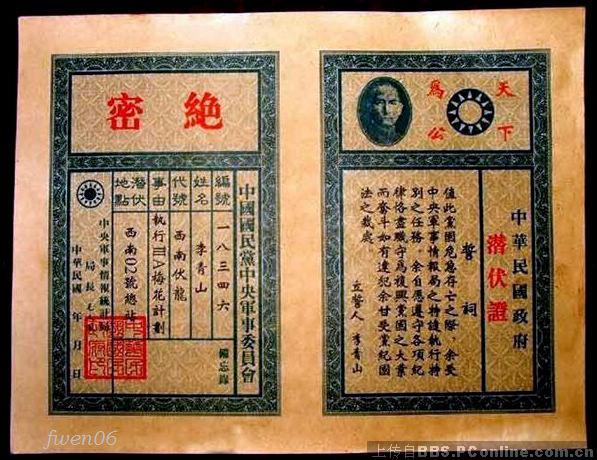 天下
為公
中華民國政府
潛伏證
誓詞
值此黨國危急存亡之際,余受
中央軍事情報局之特遣執行特
別之任務,余自愿遵守各項紀
律恪盡職守為復興黨國之大業
而奮斗如有違犯余甘受黨紀國
法之裁處。
立誓人 李青山
絕密
中國國民黨中央軍事委員會
備忘錄
編號 一八三四六
姓名 李青山
代號 西南伏龍
事由 執行ⅢA梅花計劃
潛伏地點 西南02號總站
中央軍事情報統計局
局長 毛
中華民國 年 月 日
fwen06
上传自BBS.PConline.com.cn